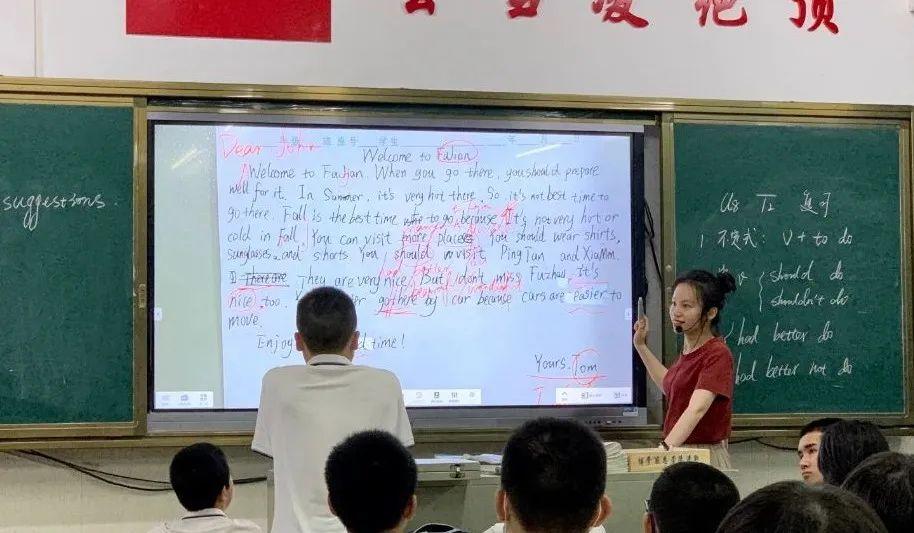 当凌绝顶
suggestions.
班座号 学生 年 月 日
Dear John
Welcome to Fujian
Welcome to Fujian. When you go there, you should prepare
well for it. In Summer, it's very hot there. So it's not best time to
go there. Fall is the best time to go because It's not very hot or
cold in Fall. You can visit more places. You should wear shirts,
sunglasses and shorts. You should visit PingTan and XiaMen.
There are They are very nice. But don't miss Fuzhou. it's
nice, too. go there by car because cars are easier to
move.
Enjoy time!
Yours.
Tom
U8
1 不定式: V + to do
should do
shouldn't do
had better do
had better not do